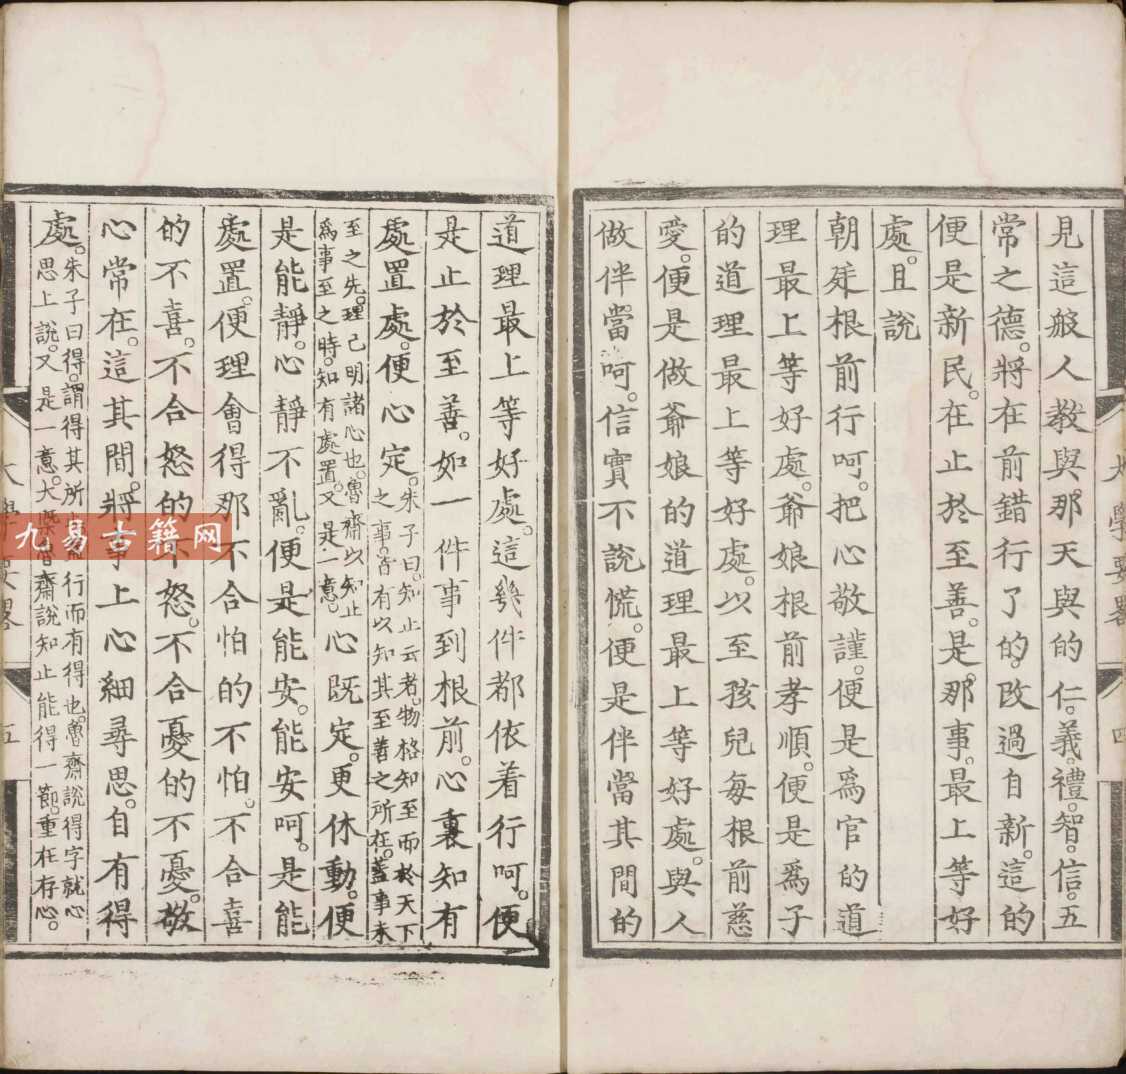 見這般人教與那天與的仁。義。禮。智。信。五
常之德。將在前錯行了的。改過自新。這的
便是新民。在止於至善。是。那事。最上等好
處。且說
朝廷根前行呵。把心敬謹。便是爲官的道
理最上等好處。爺娘根前孝順。便是爲子
的道理最上等好處。以至孩兒每根前慈
愛。便是做爺娘的道理最上等好處。與人
做伴當呵。信實不說慌。便是伴當其間的
大學要畧
四
道理最上等好處。這幾件都依着行呵。便
是止於至善。如一件事到根前。心裏知有
處置處。便心定。朱子曰。知止云者。物格知至而於天下
之事。皆有以知其至善之所在。蓋事未
至之先。理已明諸心也。魯齋以知止
爲事至之時。知有處置。又是一意。心既定。更休動。便
是能靜。心靜不亂。便是能安。能安呵。是能
處置。便理會得那不合怕的不怕。不合喜
的不喜。不合怒的不怒。不合憂的不憂。敬
心常在。這其間。將事上心細尋思。自有得
處。朱子曰。得。謂得其所 行而有得也。魯齋說得字就心
思上說。又是一意。大 魯齋說知止能得一節。重在存心。
大學要畧
五
九易古籍网